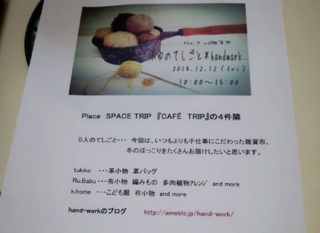 冬のてしごと*handwork
2014.12.12 (fri)
10:00~15:00
Place SPACE TRIP 『CAFÉ TRIP』の4件隣
5人のてしごと・・・ 今回は、いつもよりも手仕事にこだわった雑貨市。
冬のほっこりをたくさんお届けしたいと思います。
tukiko ・・・革小物 革バッグ
Ru.Babu・・・布小物 編みもの 多肉植物アレンジ and more
k.home ・・・こども服 布小物 and more
hand-workのブログ http://ameblo.jp/hand-work/